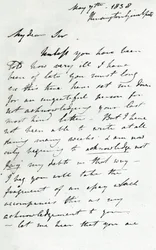 May 7th. 1838
Kensington
My dear Sir
Unless you have been
told how very ill I have
been of late you must long
ere this time have set me down
for an ungrateful person for
not acknowledging your last
most kind letter. But I have
not been able to write at all
during many weeks & am now
only beginning to acknowledge not
pay my debts in that way —
I beg you will take the
fragment of an essay which
accompanies this as my
acknowledgement to you —
& let me hear that you are